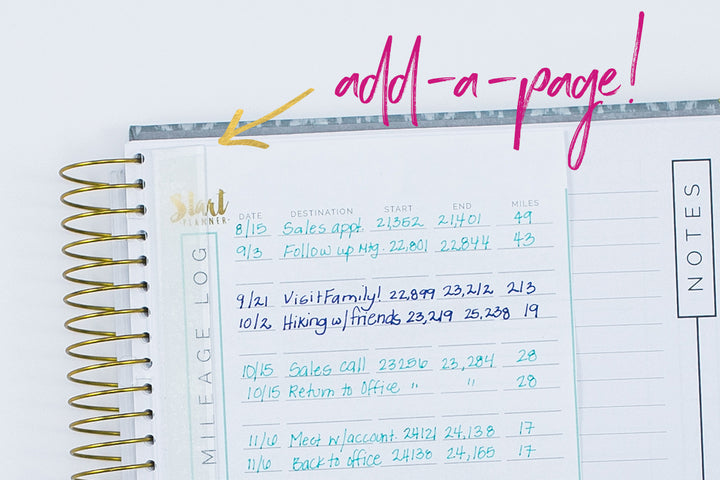 add-a-page!
Start
PLANNER
DATE DESTINATION START END MILES
8/15 Sales appt. 21,352 21,401 49
9/3 Follow up Mtg. 22,801 22,844 43
9/21 Visit Family! 22,899 23,212 213
10/2 Hiking w/friends 23,219 25,238 19
10/15 Sales call 23256 23,284 28
10/15 Return to Office " " 28
11/6 Meet w/account. 24121 24,138 17
11/6 Back to office 24138 24,155 17
MILEAGE LOG
NOTES